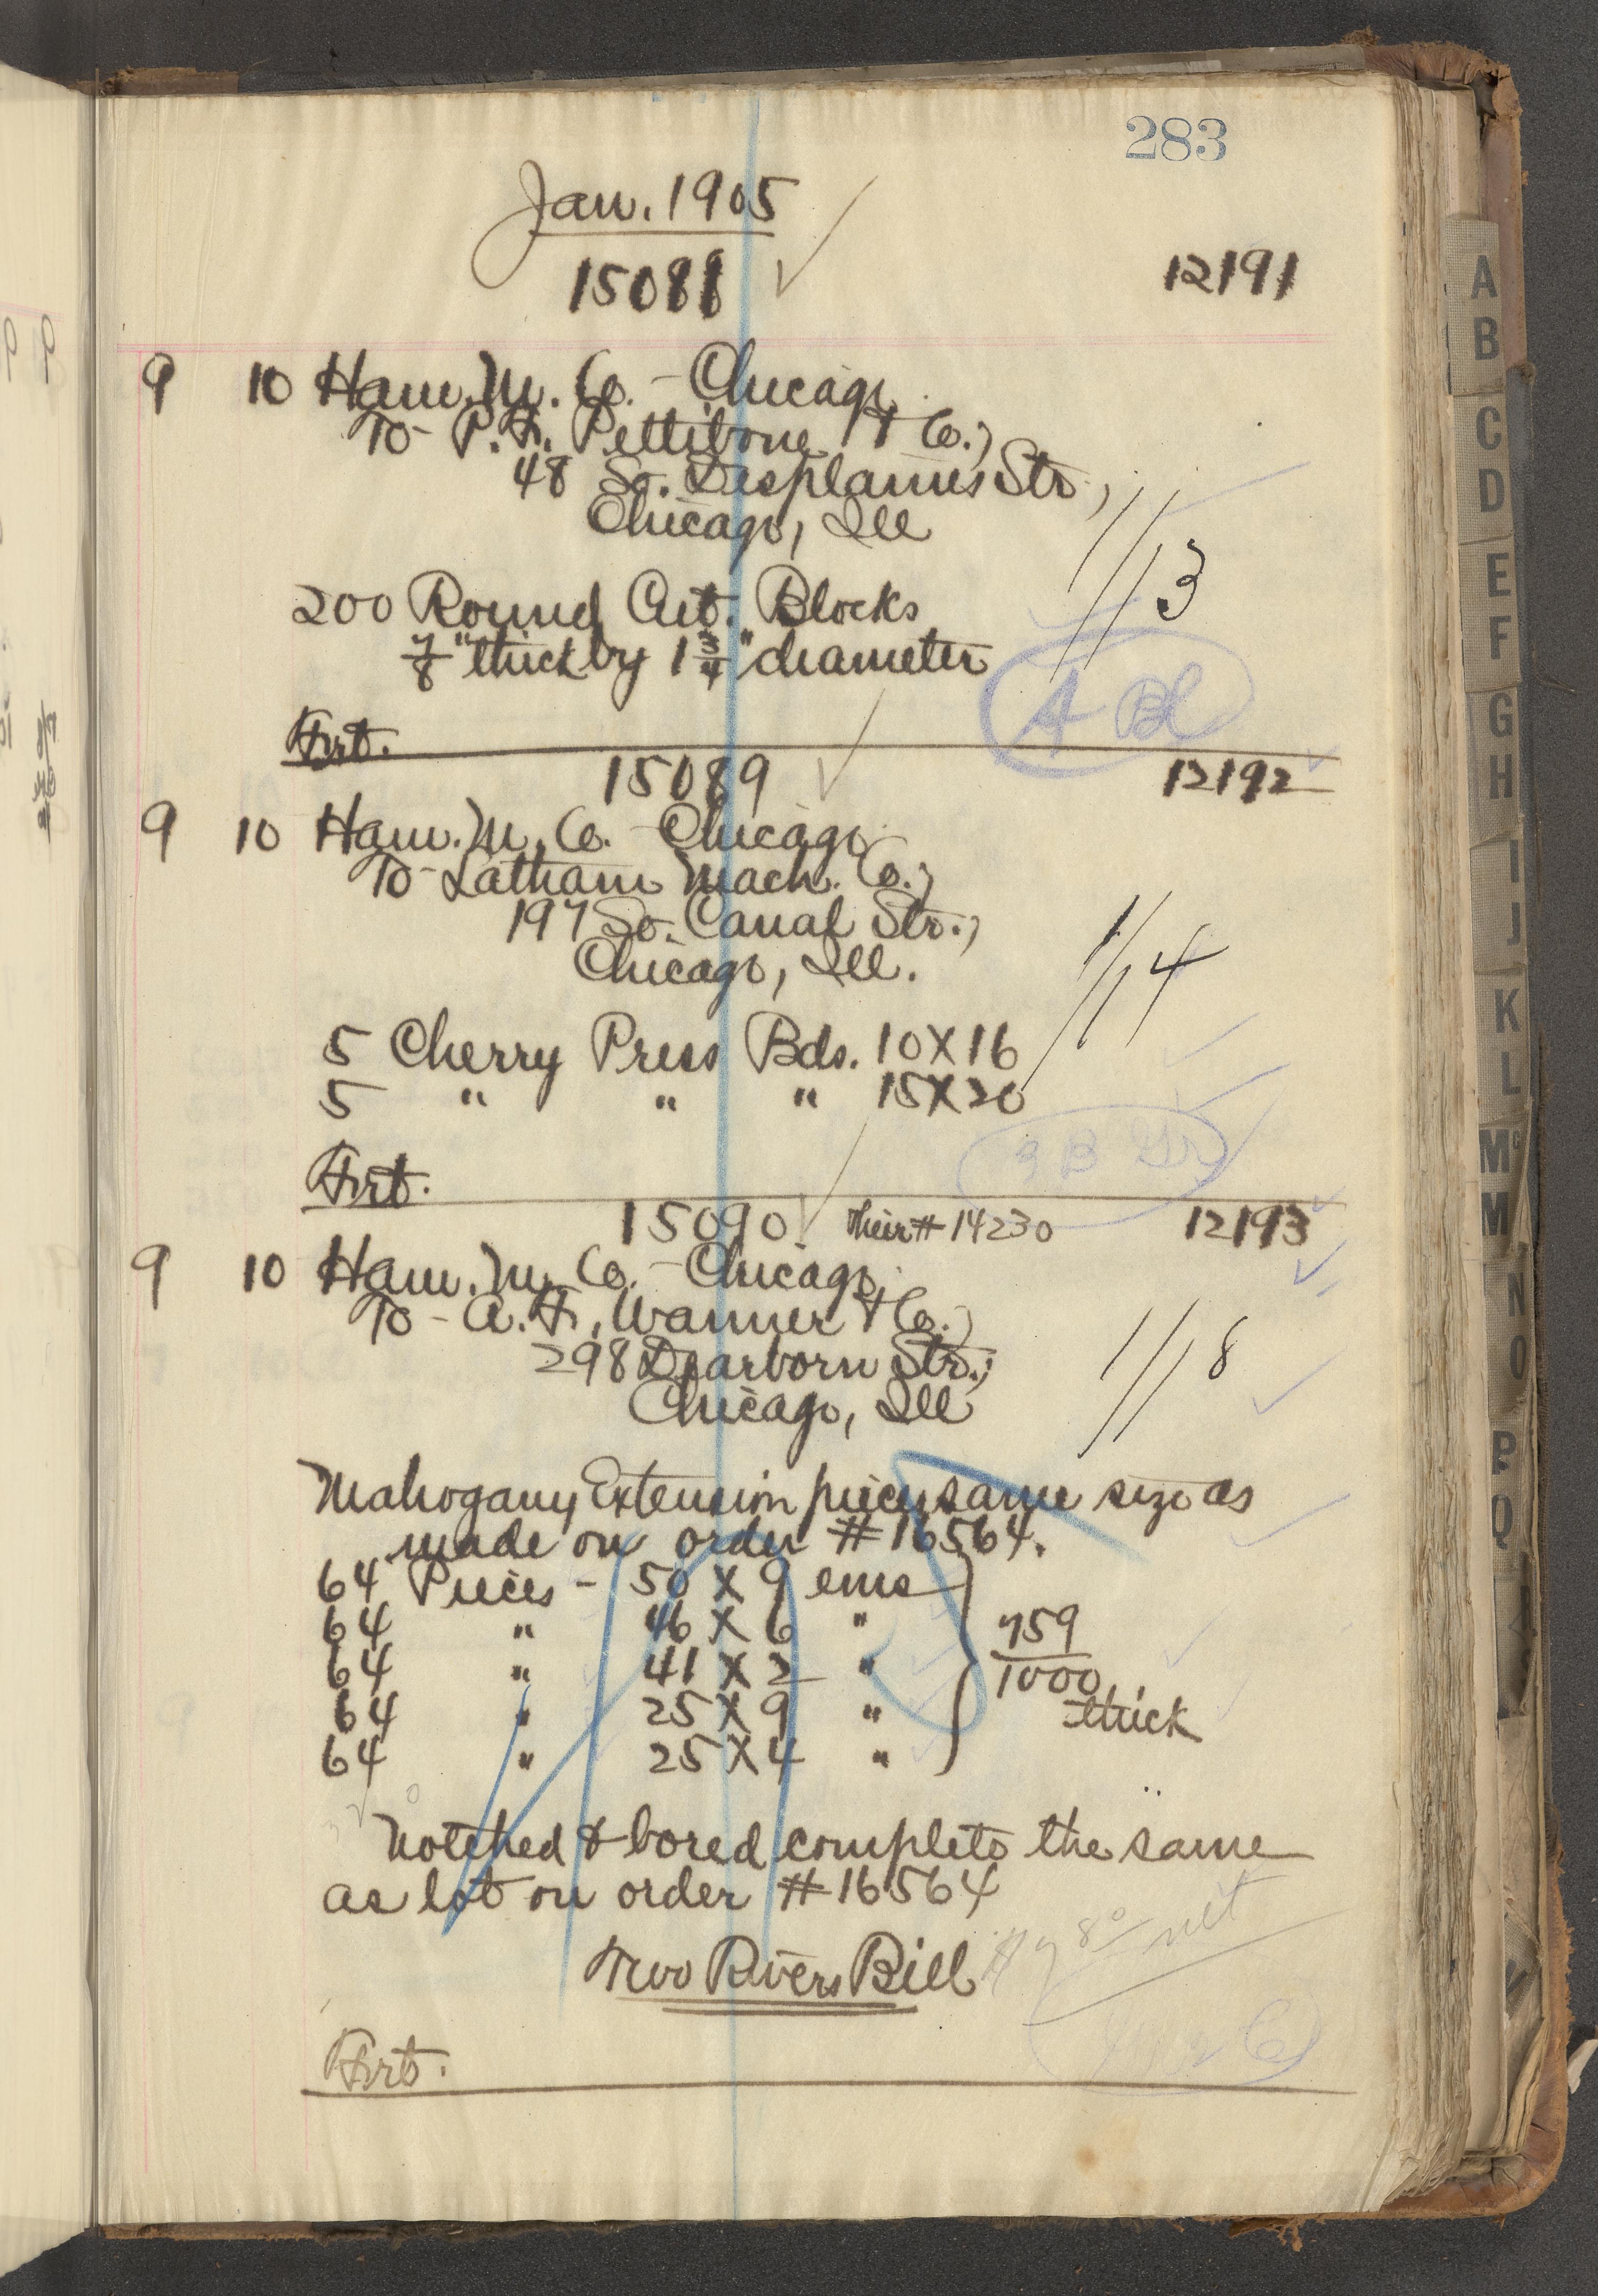 283
Jan. 1905
15088 12191
9 10 Ham. M. Co. - Chicago
To - P. F. Pettibone & Co.,
48 So. Desplaines Str.,
Chicago, Ill
1/13
200 Round Cut. Blocks
7/8" thick by 1 3/4" diameter
A Bl
Frt.
15089 12192
9 10 Ham. M. Co. - Chicago
To - Latham Mach. Co.,
197 So. Canal Str.,
Chicago, Ill.
1/14
5 Cherry Press Bds. 10 X 16
5 " " " 15 X 20
Frt.
15090 Their # 14230 12193
9 10 Ham. M. Co. - Chicago
To - A. F. Wanner & Co.,
298 Dearborn Str.,
Chicago, Ill
1/18
Mahogany Extension pieces same size as
made on order # 16564.
64 Pieces - 50 X 9 ems
64 " 46 X 6 "
64 " 41 X 2 "
64 " 25 X 9 "
64 " 25 X 4 "
759/1000" thick
Notched & bored complete the same
as lot on order # 16564
Two Rivers Bill
Frt.
A
B
C
D
E
F
G
H
I
J
K
L
Mc
M
N
O
P
Q